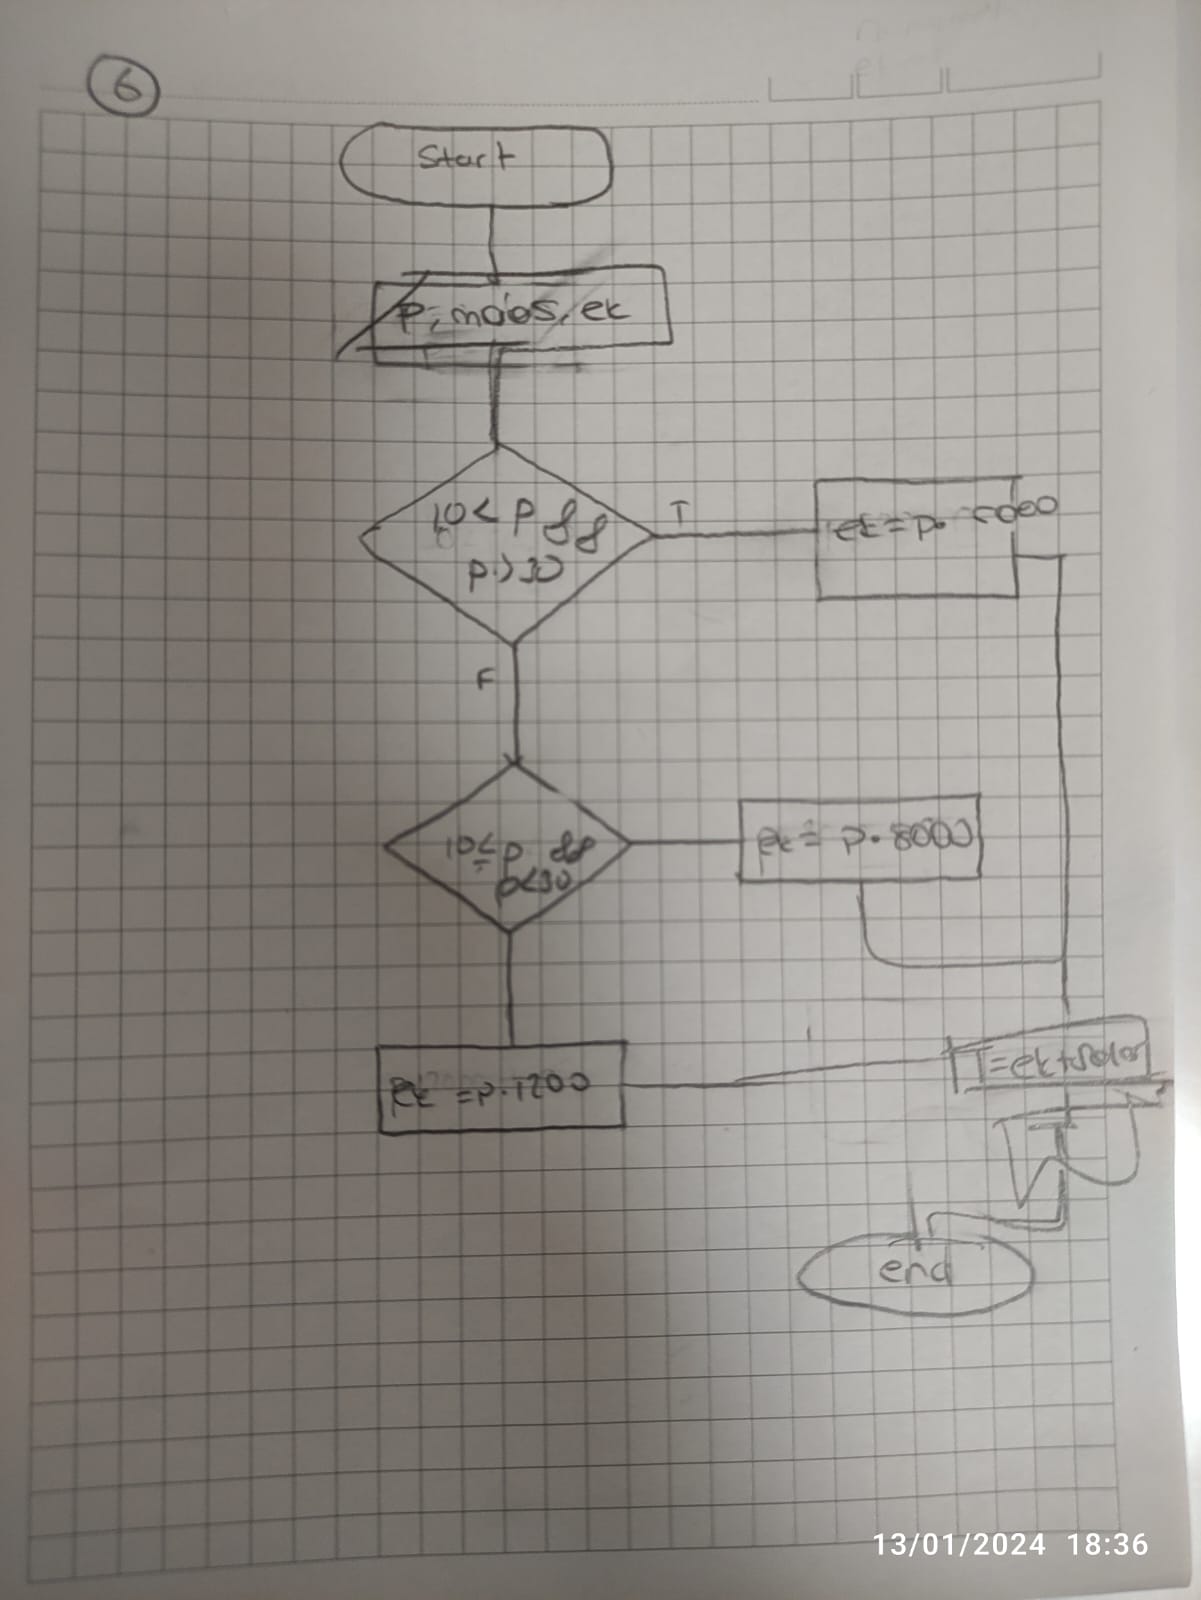 6
Start
P, maas, ek
10 < P &&
p > 30
T
ek = p.
F
10 ≤ p &&
p < 30
ek = p. 8000
ek = p. 1200
T = ek +
T
end
13/01/2024 18:36